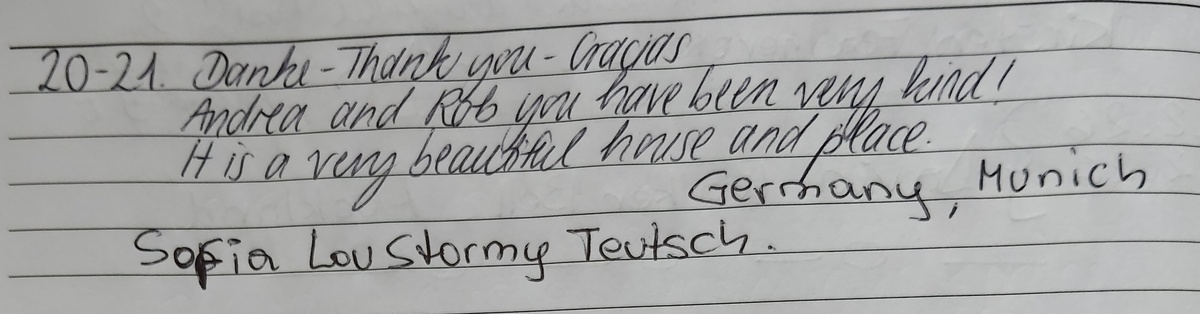 20-21. Danke - Thank you - Gracias
Andrea and Rob you have been very kind!
It is a very beautiful house and place.
Germany, Munich
Sofia Lou Stormy Teutsch.